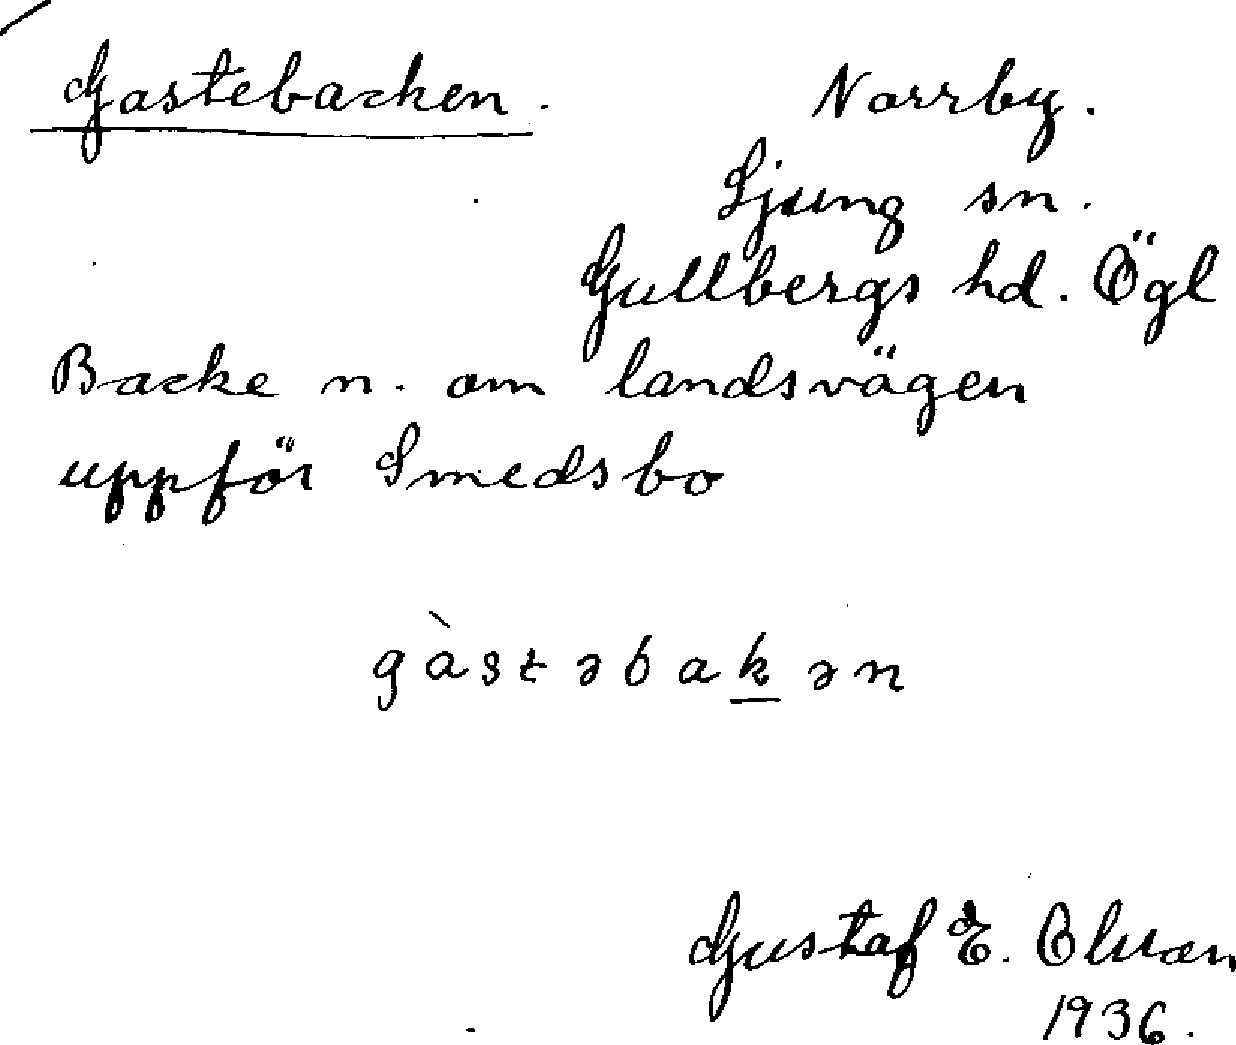 Gastebacken. Norrby.
Ljung sn.
Gullbergs hd. Ögl
Backe n. om landsvägen
uppför Smedsbo
gàstəbakən
Gustaf E.
1936.